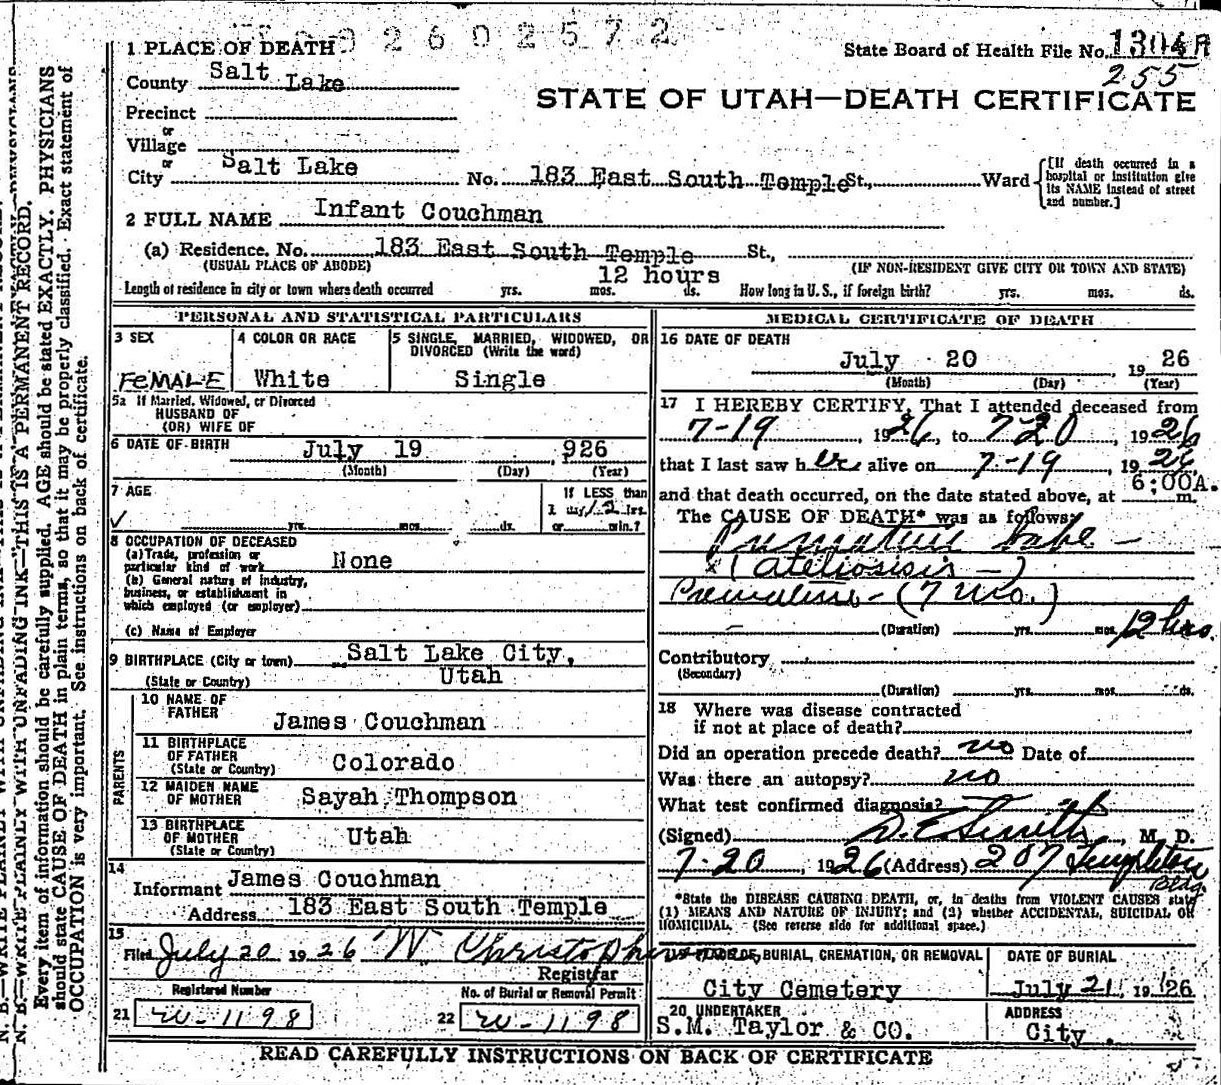 0 0 2 6 0 2 5 7 2
1 PLACE OF DEATH
State Board of Health File No. 1304A
255
County Salt Lake
STATE OF UTAH—DEATH CERTIFICATE
Precinct
or
Village
or
City Salt Lake No. 183 East South Temple St., Ward
[If death occurred in a hospital or institution give its NAME instead of street and number.]
2 FULL NAME Infant Couchman
(a) Residence. No. 183 East South Temple St.,
(USUAL PLACE OF ABODE) (IF NON-RESIDENT GIVE CITY OR TOWN AND STATE)
12 hours
Length of residence in city or town where death occurred yrs. mos. ds. How long in U. S., if foreign birth? yrs. mos. ds.
PERSONAL AND STATISTICAL PARTICULARS
3 SEX
FEMALE
4 COLOR OR RACE
White
5 SINGLE, MARRIED, WIDOWED, OR DIVORCED (Write the word)
Single
5a If Married, Widowed, or Divorced
HUSBAND OF
(OR) WIFE OF
6 DATE OF BIRTH July 19 926
(Month) (Day) (Year)
7 AGE
yrs. mos. ds.
If LESS than
1 day 12 hrs.
or min.?
8 OCCUPATION OF DECEASED
(a) Trade, profession or
particular kind of work None
(b) General nature of industry,
business, or establishment in
which employed (or employer)
(c) Name of Employer
9 BIRTHPLACE (City or town) Salt Lake City,
(State or Country) Utah
PARENTS
10 NAME OF FATHER
James Couchman
11 BIRTHPLACE OF FATHER
(State or Country) Colorado
12 MAIDEN NAME OF MOTHER Sayah Thompson
13 BIRTHPLACE OF MOTHER
(State or Country) Utah
14
Informant James Couchman
Address 183 East South Temple
15
Filed July 20 1926 W Christopherson
Registrar
Registered Number
21 W-1198
No. of Burial or Removal Permit
22 W-1198
MEDICAL CERTIFICATE OF DEATH
16 DATE OF DEATH
July 20 19 26
(Month) (Day) (Year)
17 I HEREBY CERTIFY, That I attended deceased from
7-19 1926, to 7-20, 1926
that I last saw her alive on 7-19, 1926
6:00A.
and that death occurred, on the date stated above, at m.
The CAUSE OF DEATH* was as follows:
Premature babe —
(ateliosisis —)
Premature - (7 mo.)
(Duration) yrs. mos. 12 hrs.
Contributory
(Secondary)
(Duration) yrs. mos. ds.
18 Where was disease contracted
if not at place of death?
Did an operation precede death? no Date of
Was there an autopsy? no
What test confirmed diagnosis?
(Signed) D. E. Smith, M. D.
7-20, 1926 (Address) 207 Templeton
Bldg.
*State the DISEASE CAUSING DEATH, or, in deaths from VIOLENT CAUSES state
(1) MEANS AND NATURE OF INJURY; and (2) whether ACCIDENTAL, SUICIDAL OR
HOMICIDAL. (See reverse side for additional space.)
19 PLACE OF BURIAL, CREMATION, OR REMOVAL
City Cemetery
DATE OF BURIAL
July 21, 19 26
20 UNDERTAKER
S.M. Taylor & CO.
ADDRESS
City.
READ CAREFULLY INSTRUCTIONS ON BACK OF CERTIFICATE
N. B.—WRITE PLAINLY WITH UNFADING INK—THIS IS A PERMANENT RECORD.
Every item of information should be carefully supplied. AGE should be stated EXACTLY. PHYSICIANS
should state CAUSE OF DEATH in plain terms, so that it may be properly classified. Exact statement of
OCCUPATION is very important. See instructions on back of certificate.